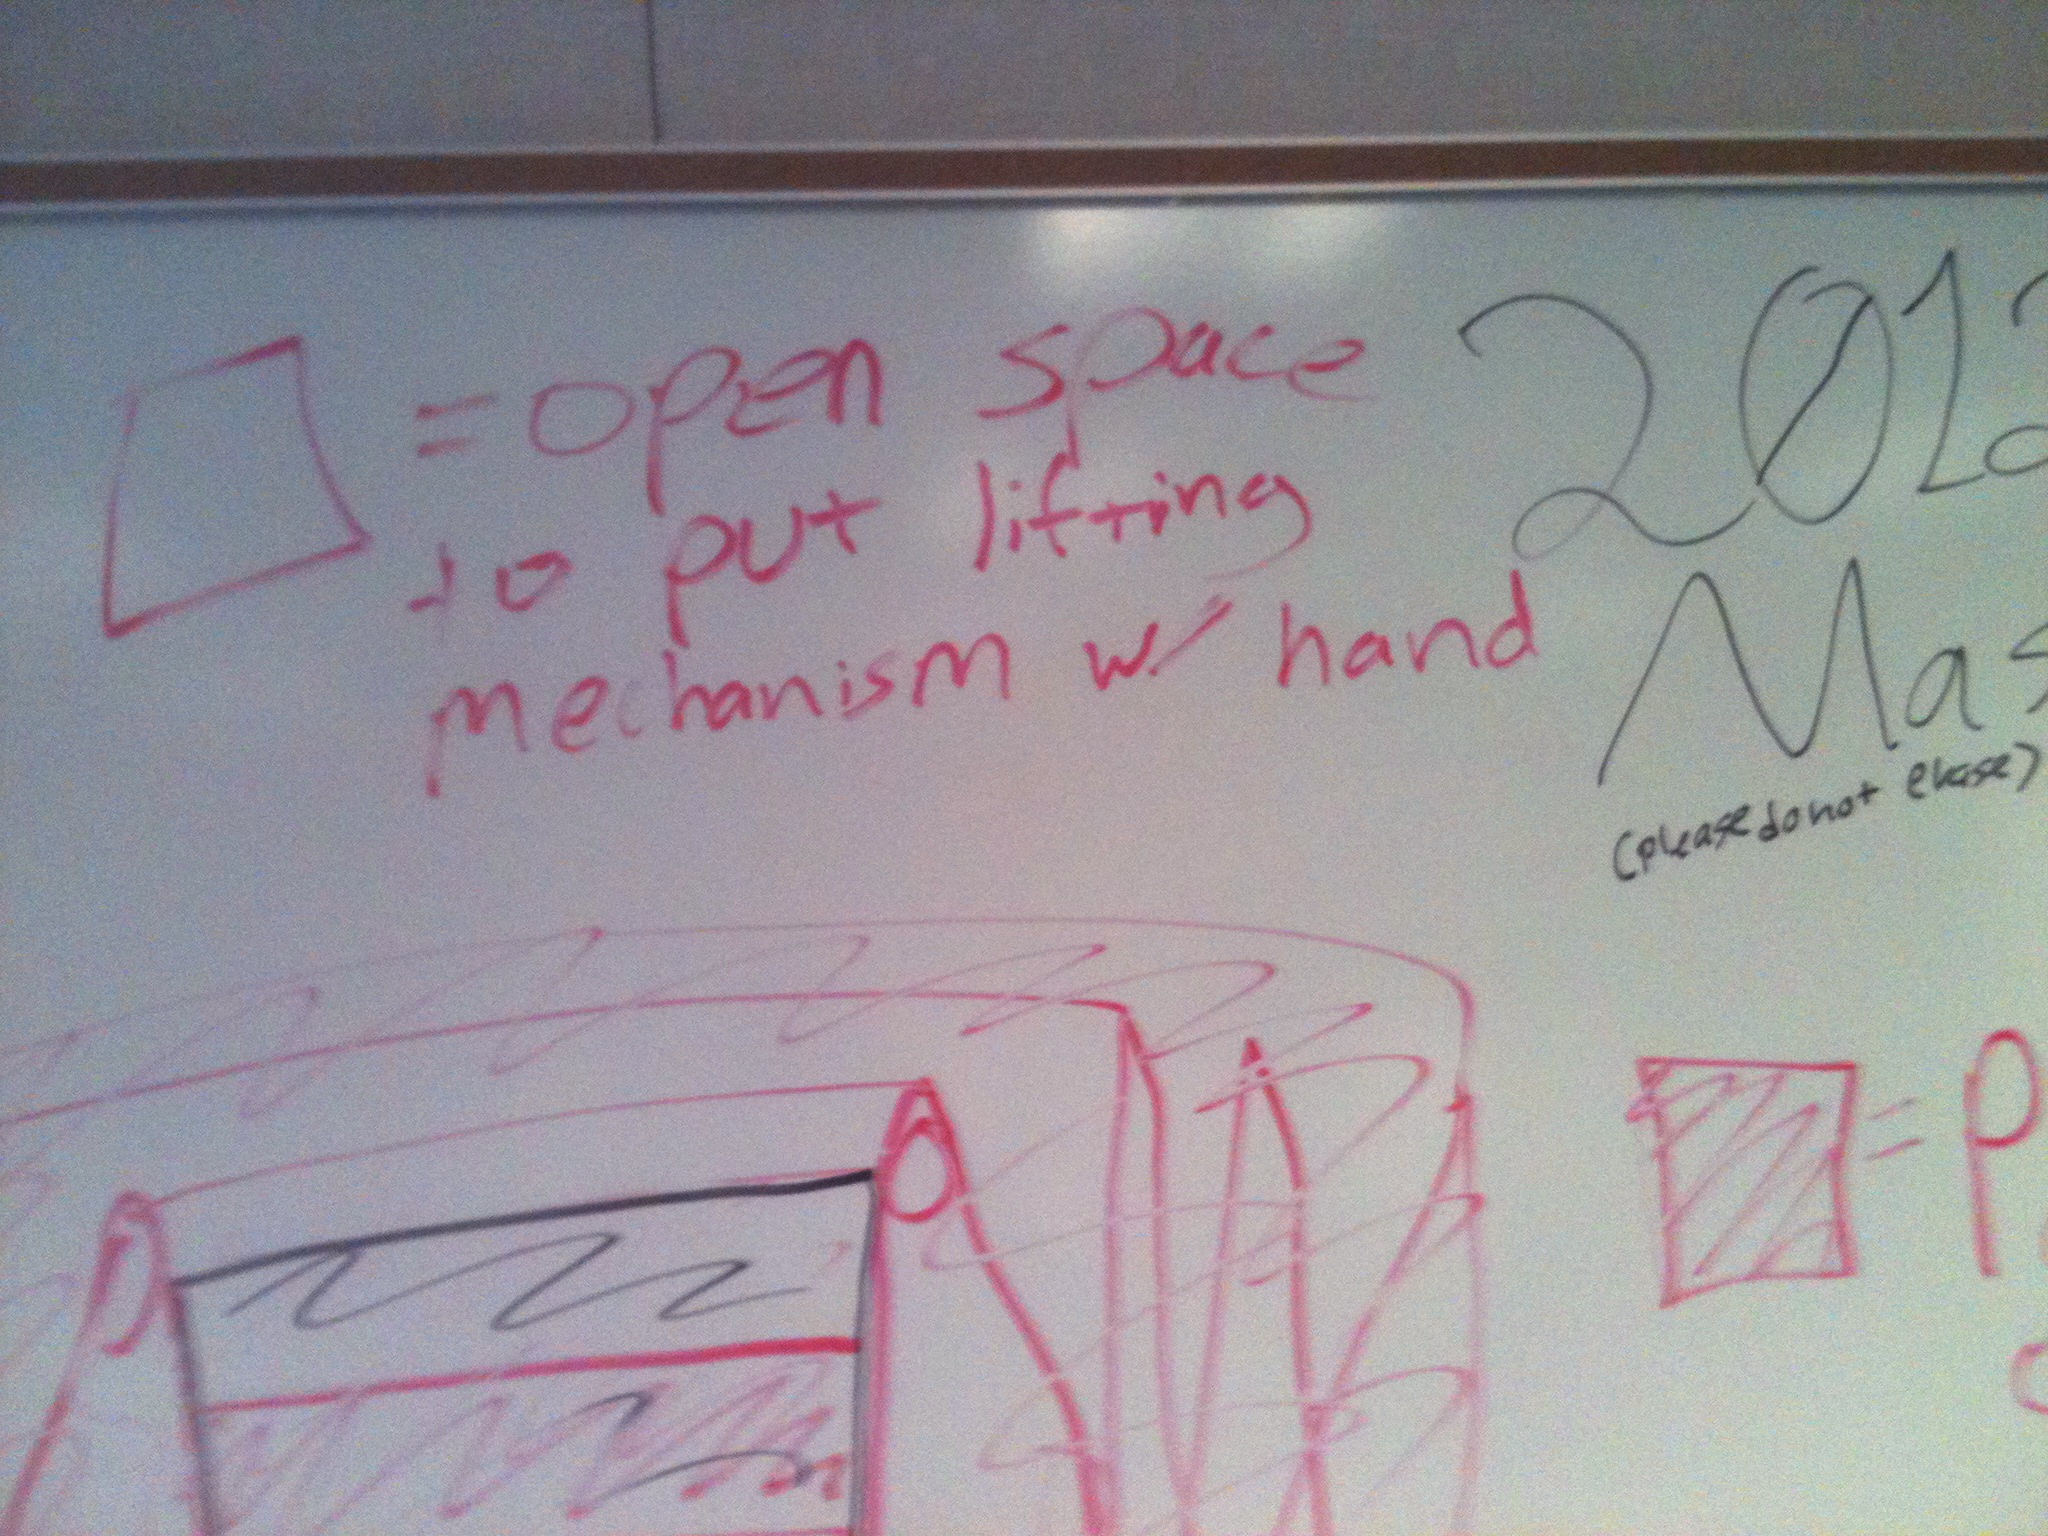 = open space
to put lifting
mechanism w/ hand
2012
Mas
(please do not erase)
= P